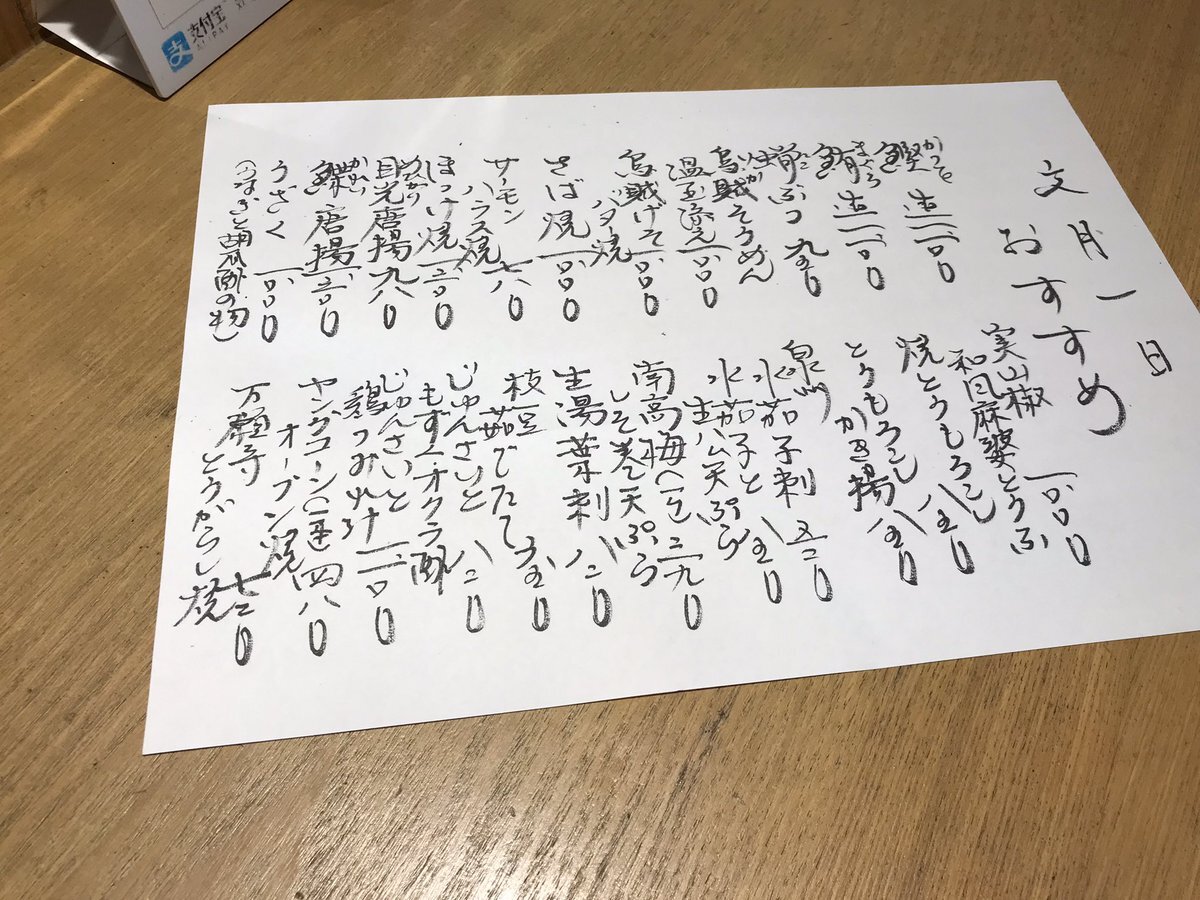 文月一日
おすすめ
鰹 生 一二〇〇
かつを
鮪 生 一二〇〇
まぐろ
蛸ぶつ 九五〇
たこ
烏賊そうめん
いか
温玉添え 一〇〇〇
烏賊げそ
バター焼 一〇〇〇
さば焼 一〇〇〇
サーモン
ハラス焼 七八〇
ほっけ焼 一三〇〇
目光唐揚 九八〇
めひかり
唐揚 一三〇〇
うざく 一〇〇〇
(うなぎと胡瓜酢の物)
実山椒
和風麻婆とうふ 一〇〇〇
焼とうもろこし 八五〇
とうもろこし
かき揚 八五〇
泉州
水茄子刺 五二〇
水茄子と
生ハム天ぷら 八五〇
南高梅(一ヶ)二九〇
しそ巻天ぷら
生湯葉刺 八二〇
枝豆
茹でたて 五五〇
じゅんさいと
もずくオクラ酢 八二〇
じゅんさいと
鶏つみれ汁 一二〇〇
ヤングコーン(一本)四八〇
オーブン焼
万願寺
とうがらし焼 七二〇
支付宝
ALIPAY